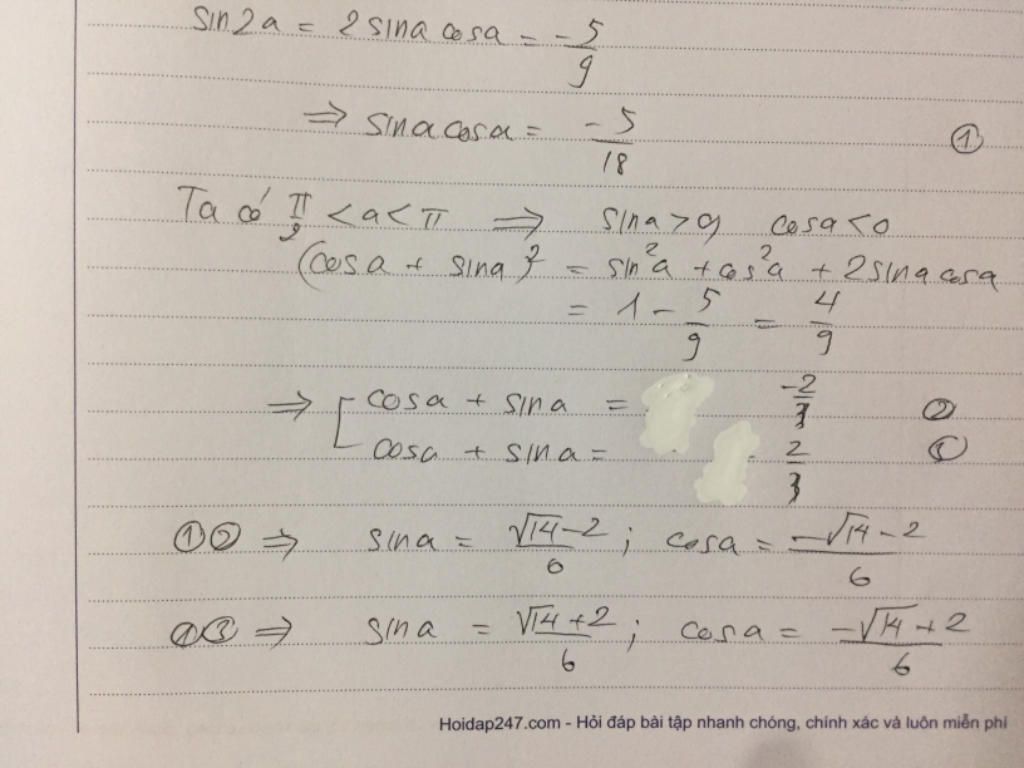 sin2a = 2sina cosa = -5/9
⇒ sina cosa = -5/18 ①
Ta có π/2 < a < π ⇒ sina > 0, cosa < 0
(cosa + sina)² = sin²a + cos²a + 2sina cosa
= 1 - 5/9 = 4/9
⇒ [ cosa + sina = -2/3 ②
cosa + sina = 2/3
①② ⇒ sina = √14-2/6 ; cosa = -√14-2/6
①③ ⇒ sina = √14+2/6 ; cosa = -√14+2/6
Hoidap247.com - Hỏi đáp bài tập nhanh chóng, chính xác và luôn miễn phí